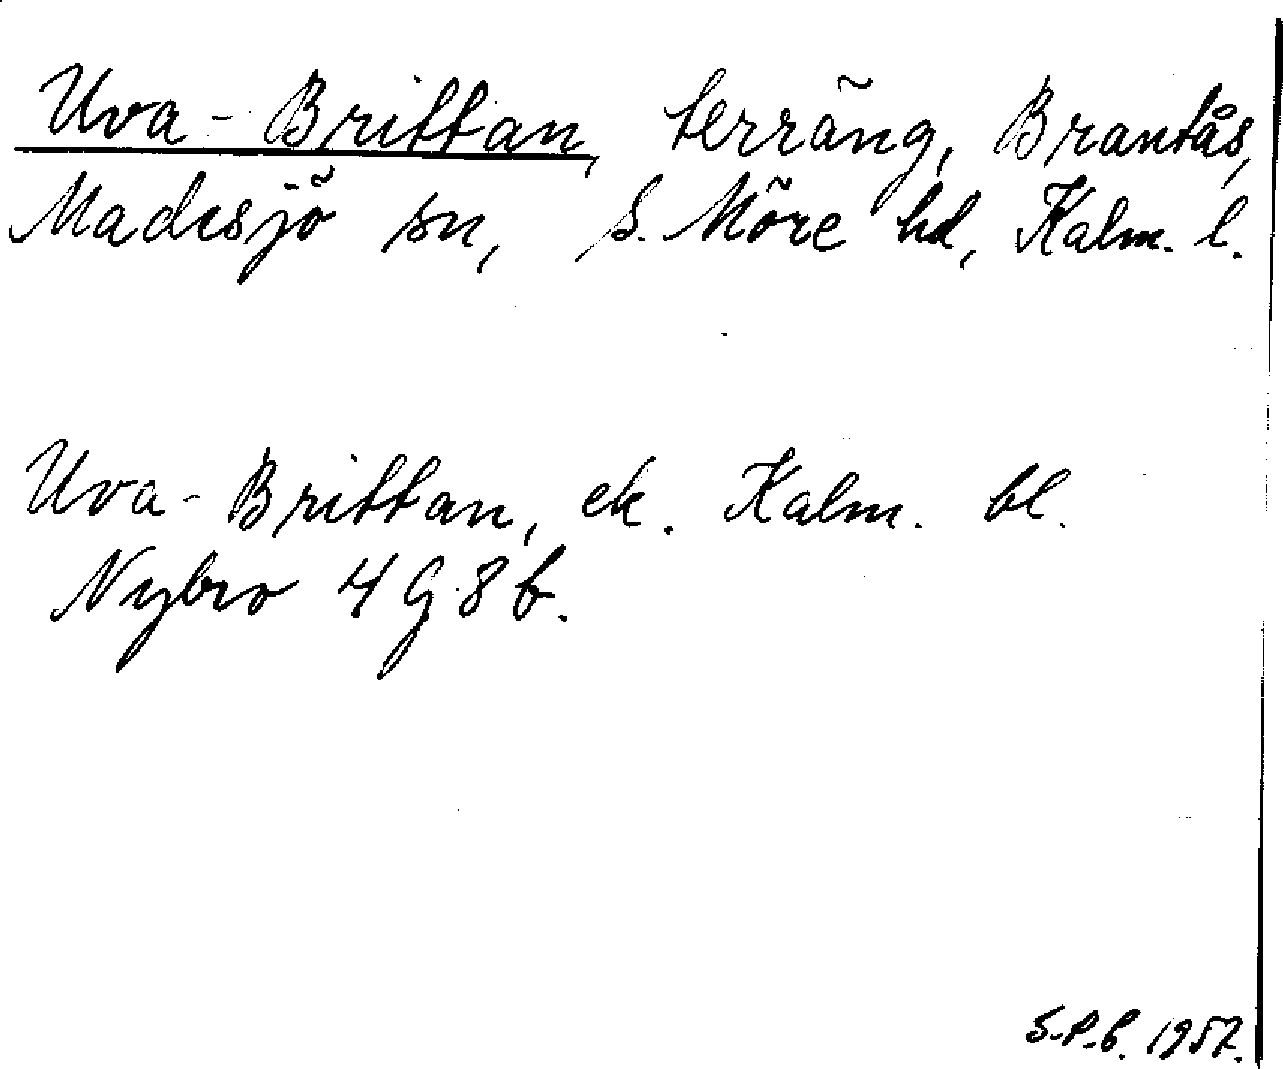 Uva-Brittan, terräng, Brantås,
Madesjö sn, S. Möre hd, Kalm. l.
Uva-Brittan, ek. Kalm. bl.
Nybro 4 G 8 b.
S.P.B. 1957.